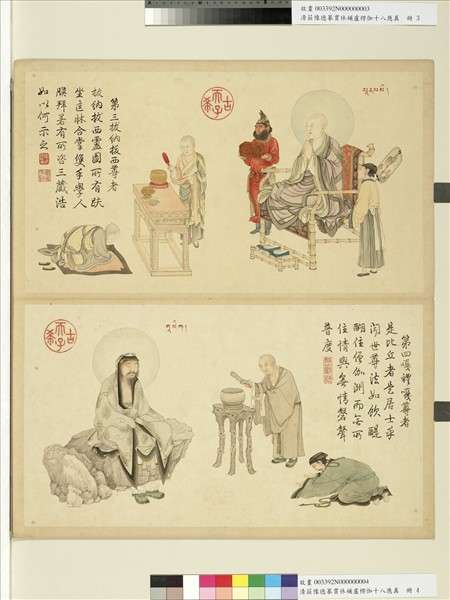 故畫 003392N000000003
清莊豫德摹貫休補盧楞伽十八應真 冊 3
古希天子
第三拔納拔西尊者
拔納拔西靈圖所有趺
坐匡牀合掌雙手學人
膜拜若有所咨三藏浩
如以何示之
古希天子
第四嘎禮嘎尊者
是比丘者是居士乎
聞世尊法如飲醍
醐住僧伽洲而無所
住情與無情磬聲
普度
故畫 003392N000000004
清莊豫德摹貫休補盧楞伽十八應真 冊 4